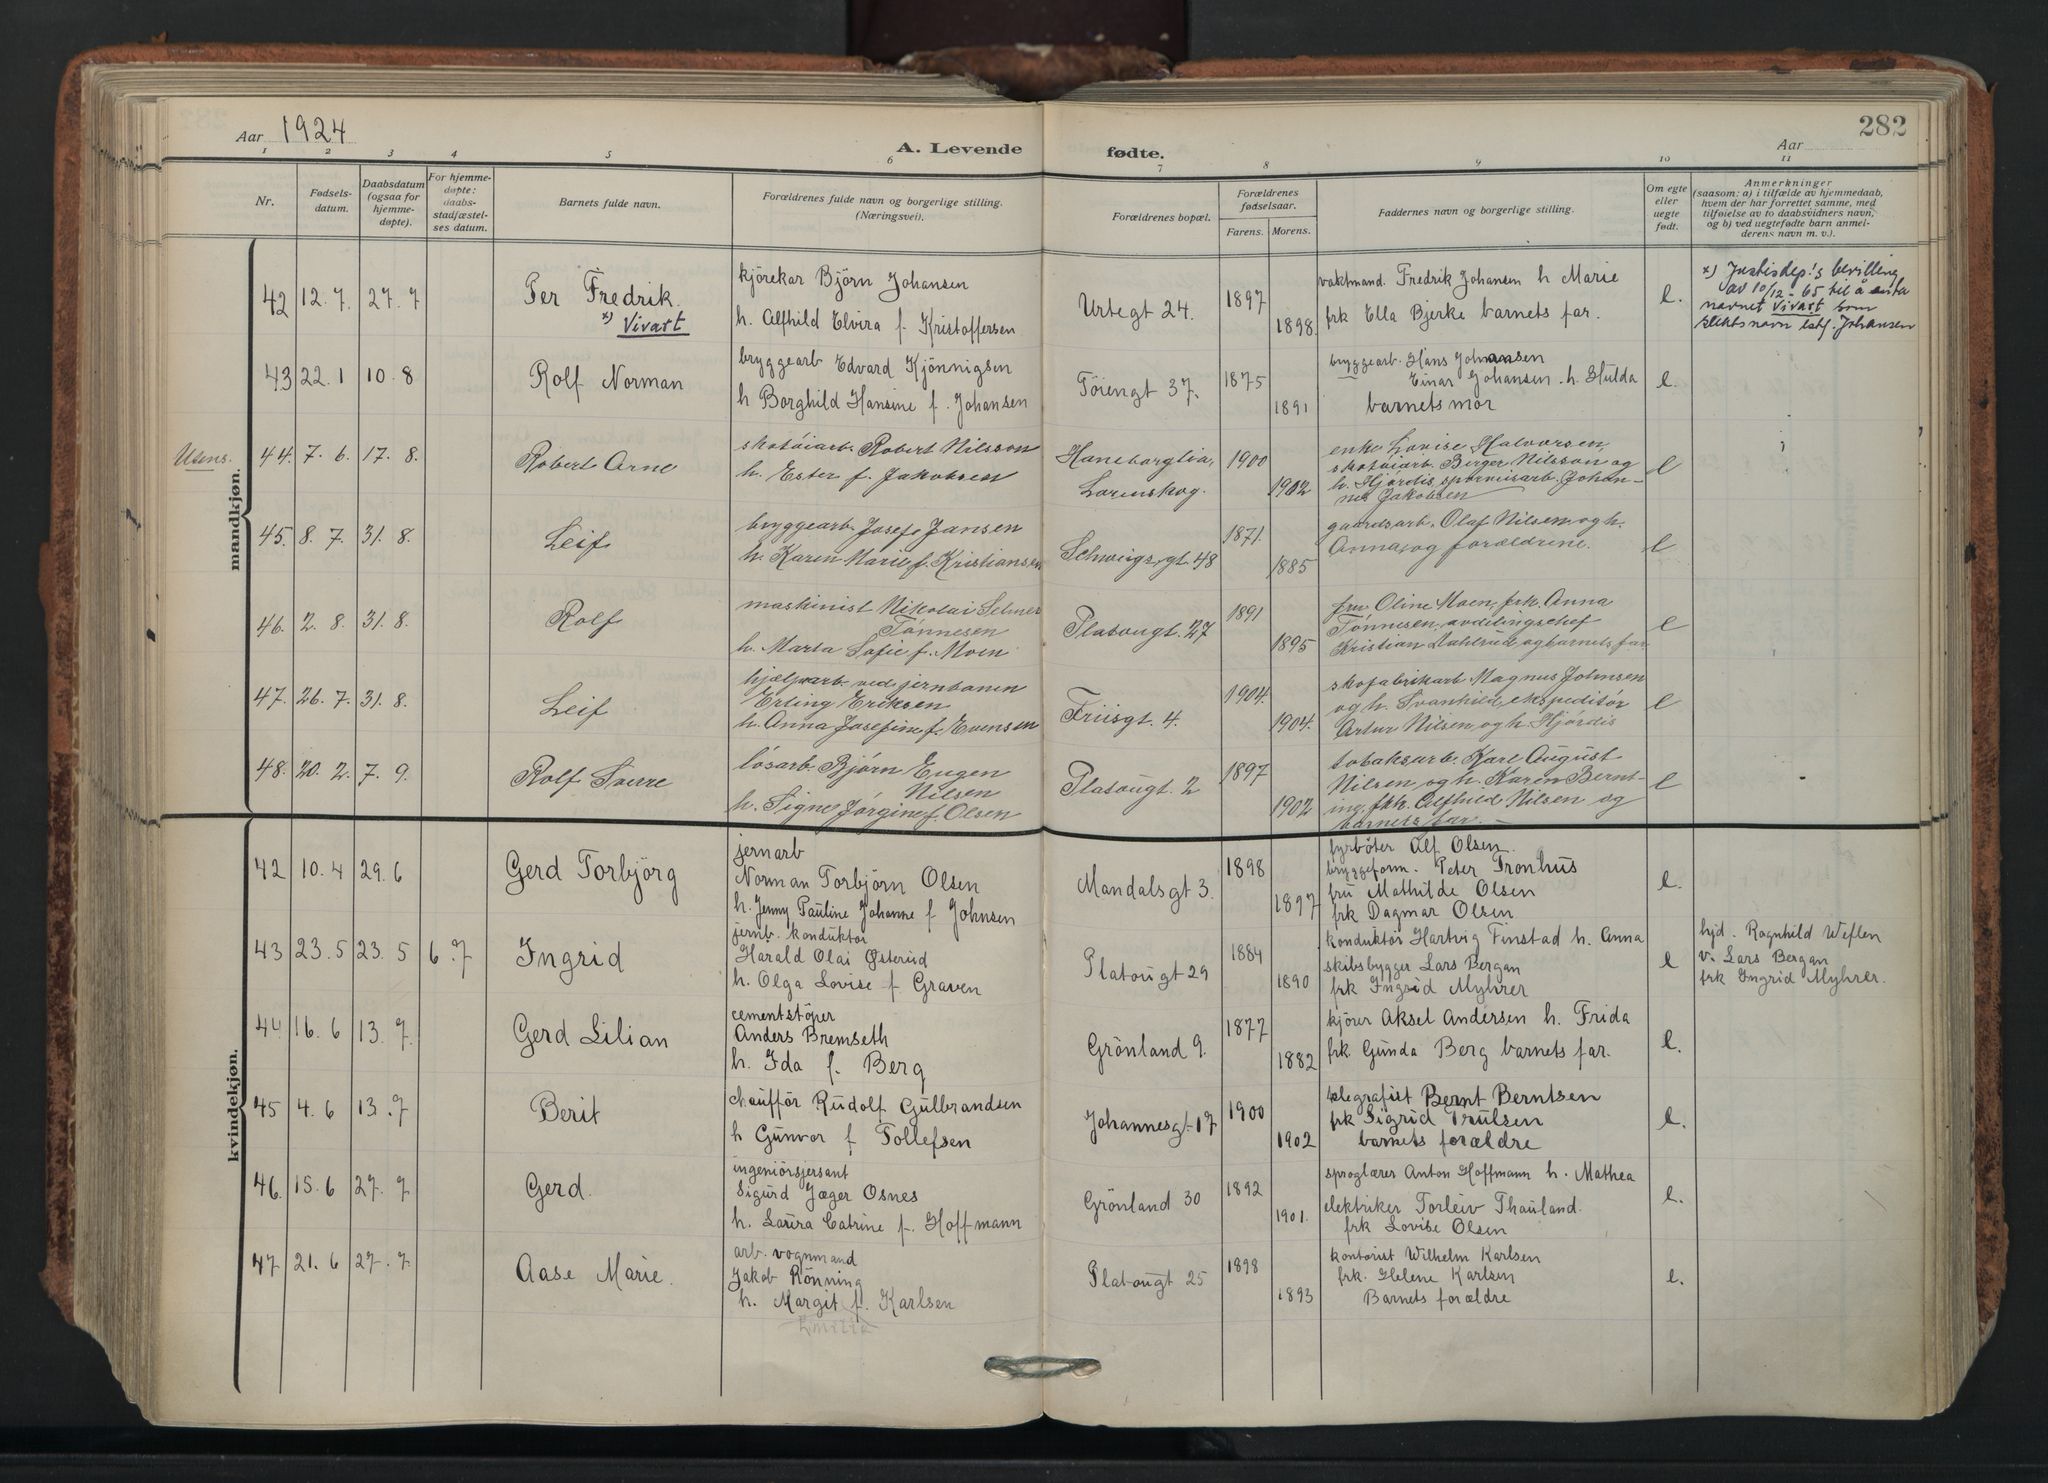 282
Aar 1924
A. Levende fødte.
Aar
1 2 3 4 5 6 7 8 9 10 11
Nr.
Fødsels-
datum.
Daabsdatum
(ogsaa for
hjemme-
døpte).
For hjemme-
døpte:
daabs-
stadfæstel-
ses datum.
Barnets fulde navn.
Forældrenes fulde navn og borgerlige stilling.
(Næringsvei).
Forældrenes bopæl.
Forældrenes
fødselsaar.
Farens. Morens.
Faddernes navn og borgerlige stilling.
Om egte
eller
uegte
født.
Anmerkninger
(saasom: a) i tilfælde av hjemmedaab,
hvem der har forrettet samme, med
tilføielse av to daabsvidners navn,
og b) ved uegtefødte barn anmel-
derens navn m. v.).
mandkjøn.
42 12.7. 27.7
Per Fredrik.
x) Vivart
kjörekar Björn Johansen
h. Alfhild Elvira f. Kristoffersen
Urtegt 24.
1897
1898.
vaktmand. Fredrik Johansen h Marie
frk Ella Bjerke barnets far.
e.
x) Justisdep!s bevilling
av 10/12-65 til å anta
navnet Vivart som
slektsnavn istf. Johansen
43 22.1 10.8
Rolf Norman
bryggearb Edvard Kjönnigsen
h Borghild Hansine f. Johansen
Töiengt 37.
1875
1891
bryggearb. Hans Johansen
Einar Johansen. h. Hulda
barnets mor
e.
Usens.
44. 7. 6. 17. 8.
Robert Arne
skotöiarb. Robert Nilsson
h. Ester f. Jakobsen
Haneborglia,
Lørenskog.
1900
1902
enke Lovise Halvorsen,
skotöiarb. Berger Nilsson og
h. Hjördis, sporveisarb. Johan-
nes Jakobsen
e
45. 8. 7. 31. 8.
Leif
bryggearb. Josef Jansen
h. Karen Marie f. Kristiansen
Schweigs.gt. 48
1871.
1885
gaardsarb. Olaf Nilsen og h.
Anna, og forældrene.
e
46. 2. 8. 31. 8.
Rolf
maskinist Nikolai Selmer
Tönnesen
h. Marta Sofie f. Moen
Platougt. 27
1891
1895
fru Oline Moen, frk. Anna
Tönnesen, avdelingschef
Kristian Dahlrud, og barnets far
e
47. 26. 7. 31. 8.
Leif
hjælpearb. ved jernbanen
Erling Eriksen
h. Anna Josefine f. Evensen
Friisgt. 4.
1904.
1904.
skofabrikarb. Magnus Johnsen
og h. Svanhild, ekspeditör
Artur Nilsen, og h. Hjördis
e
48. 20. 2. 7. 9.
Rolf Sverre
lösarb. Björn Eugen
Nilsen
h. Signe Jörgine f. Olsen
Platougt. 2
1897
1902
tobaksarb. Karl August
Nilsen og h. Karen Bernt-
ine, frk. Alfhild Nilsen og
barnets far. —
e
kvindekjøn.
42 10.4 29.6
Gerd Torbjörg
jernarb
Norman Torbjörn Olsen
h. Jenny Pauline Johanne f Johnsen
Mandalsgt 3.
1898
1897
fyrböter Alf Olsen.
bryggeform. Peter Tronhus
fru Mathilde Olsen
frk Dagmar Olsen
e.
43 23.5 23.5 6.7
Ingrid
jernb. konduktör
Harald Olai Østerud
h. Olga Lovise f Graven
Platougt 29
1884
1890
konduktör Hartvig Finstad h. Anna
skibsbygger Lars Bergan
frk Ingrid Myhrer
e
hjd. Ragnhild Weflen
v. Lars Bergan
frk Ingrid Myhrer.
44 16.6 13.7.
Gerd Lilian
cementstöper
Anders Bremseth
h. Ida f. Berg
Grönland 9.
1877
1882
kjörer Aksel Andersen h. Frida
frk. Gunda Berg barnets far.
e.
45 4.6 13.7
Berit
chaufför Rudolf Gulbrandsen
h Gunvor f Tollefsen
Johannesgt 17
1900
1902
telegrafist Bernt Berntsen
frk Sigrid Trulsen
barnets forældre
e.
46. 15.6 27.7
Gerd.
ingeniörsjersant
Sigurd Jæger Osnes
h. Laura Catrine f. Hoffmann
Grönland 30
1892
1901.
sproglærer Anton Hoffmann h. Mathea
elektriker Torleiv Thauland.
frk Lovise Olsen
e.
47 21.6 27.7
Aase Marie.
arb. vognmand
Jakob Rönning
h. Margit f. Karlsen
Emilie
Platougt 25
1898
1893
kontorist Wilhelm Karlsen
frk. Helene Karlsen
Barnets forældre
e.